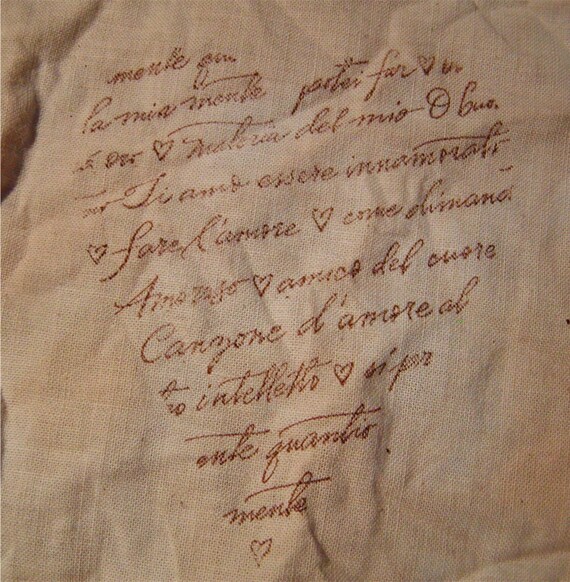 mente qu
la mia mente potei far ♡ in
è ore ♡ materia del mio O buo
mo Ti amo essere innamorato
♡ fare l'amore ♡ come dimand
Amoroso ♡ amico del cuore
Canzone d'amore al
to intelletto ♡ si pr
ente quantio
mente
♡